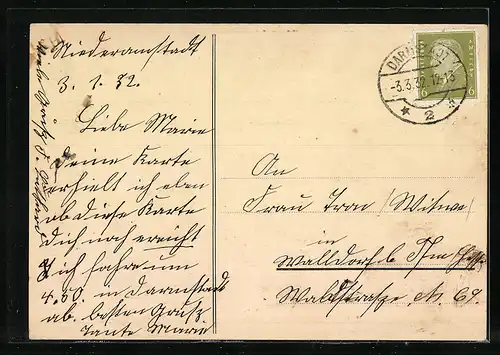 Niederramstadt
3. 1. 32.
Liebe Marie
Deine Karte
erhielt ich eben
ob diese Karte
dich noch erreicht
ich fahre um
4.50. in Darmstadt
ab. besten Gruß
Tante Marie
DARMSTADT
-3.3.32.12-13
* 2
6 6
An
Frau Tron / Witwe /
in
Walldorf b. Ffm
Waldstrasse, N. 69.